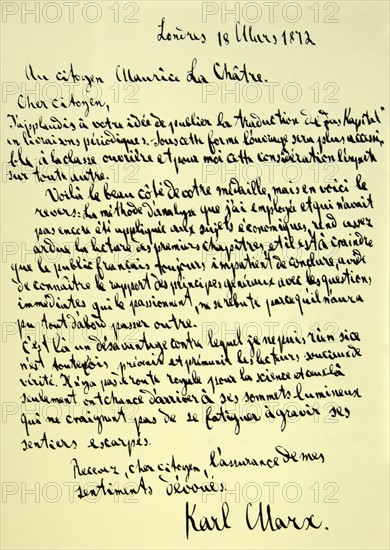 Londres 18 Mars 1872
Au citoyen Maurice La Châtre.
Cher citoyen,
J'applaudis à votre idée de publier la traduction de "Das Kapital"
en livraisons périodiques. Sous cette forme l'ouvrage sera plus accessi-
ble à la classe ouvrière et pour moi cette considération l'emporte
sur toute autre.
Voilà le beau côté de votre médaille, mais en voici le
revers: La méthode d'analyse que j'ai employée et qui n'avait
pas encore été appliquée aux sujets économiques, rend assez
ardue la lecture des premiers chapitres et il est à craindre
que le public français toujours impatient de conclure, avide
de connaître le rapport des principes généraux avec les questions
immédiates qui le passionnent, ne se rebute parce qu'il n'aura
pu tout d'abord passer outre.
C'est là un désavantage contre lequel je ne puis rien si ce
n'est toutefois prévenir et prémunir les lecteurs soucieux de
vérité. Il n'y a pas de route royale pour la science et ceux-là
seulement ont chance d'arriver à ses sommets lumineux
qui ne craignent pas de se fatiguer à gravir ses
sentiers escarpés.
Recevez, cher citoyen, l'assurance de mes
sentiments dévoués.
Karl Marx.
PHOTO12